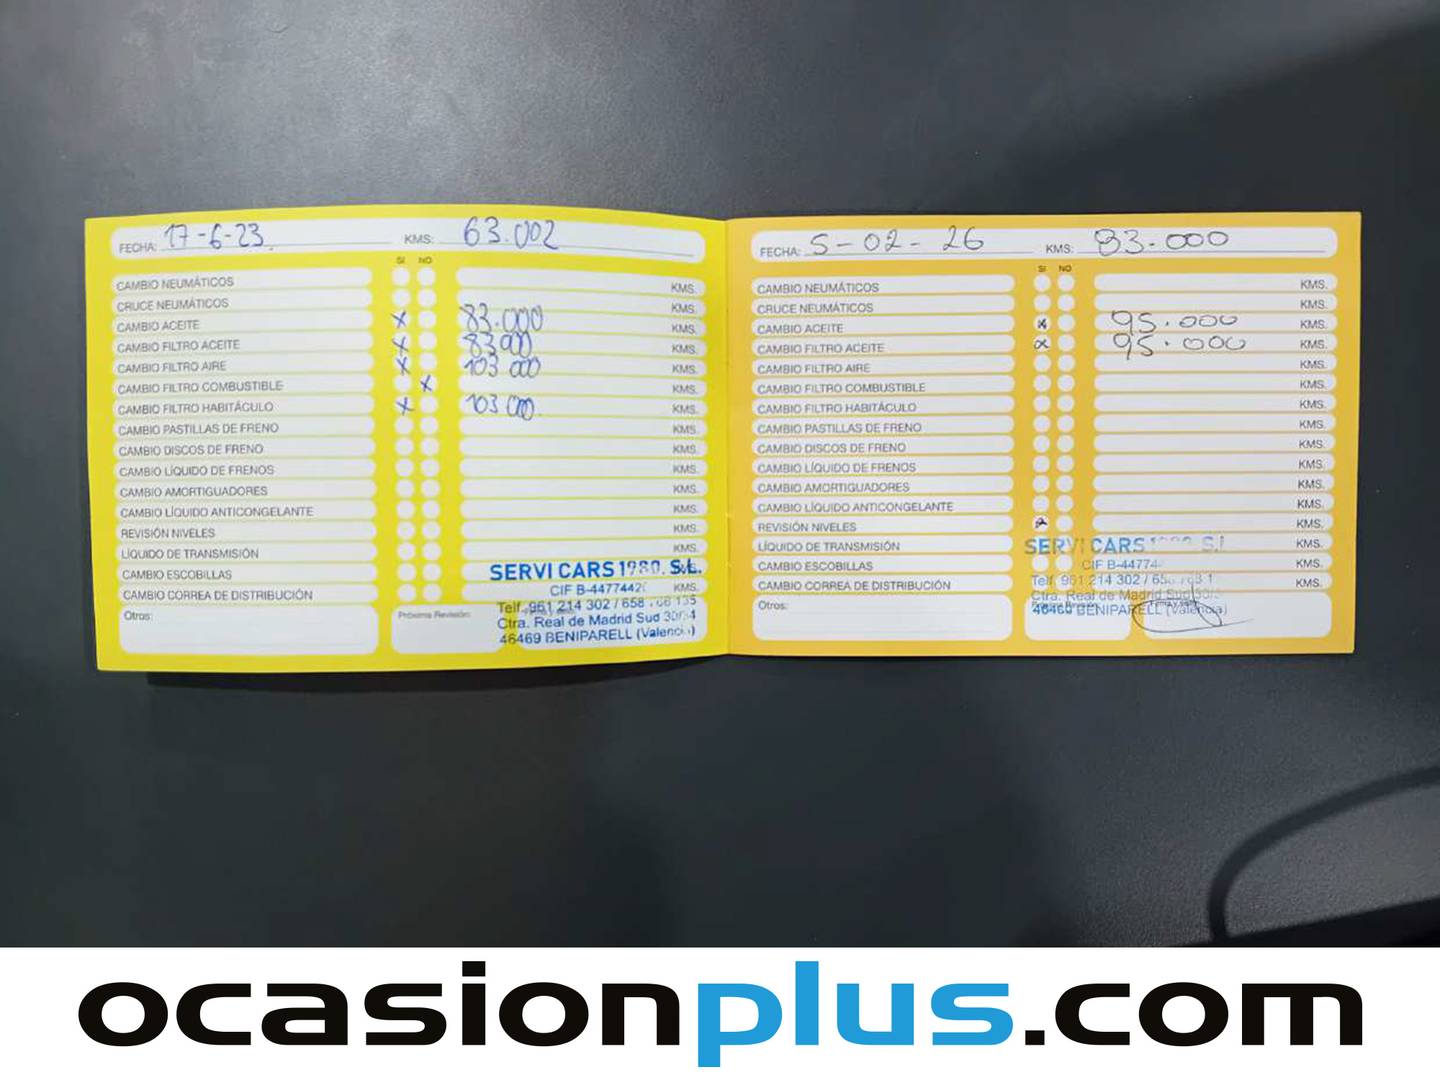 FECHA: 17-6-23 KMS: 63.002
SI NO
CAMBIO NEUMÁTICOS KMS.
CRUCE NEUMÁTICOS KMS.
CAMBIO ACEITE X 83.000 KMS.
CAMBIO FILTRO ACEITE X 83000 KMS.
CAMBIO FILTRO AIRE X 103 000 KMS.
CAMBIO FILTRO COMBUSTIBLE X KMS.
CAMBIO FILTRO HABITÁCULO X 103 000 KMS.
CAMBIO PASTILLAS DE FRENO KMS.
CAMBIO DISCOS DE FRENO KMS.
CAMBIO LÍQUIDO DE FRENOS KMS.
CAMBIO AMORTIGUADORES KMS.
CAMBIO LÍQUIDO ANTICONGELANTE KMS.
REVISIÓN NIVELES KMS.
LÍQUIDO DE TRANSMISIÓN KMS.
CAMBIO ESCOBILLAS
CAMBIO CORREA DE DISTRIBUCIÓN KMS.
Otros:
Próxima Revisión:
SERVI CARS 1980, S.L.
CIF B-4477442
Telf. 961 214 302 / 658 135
Ctra. Real de Madrid Sud 30/34
46469 BENIPARELL (Valencia)
FECHA: 5-02-26 KMS: 83.000
SI NO
CAMBIO NEUMÁTICOS KMS.
CRUCE NEUMÁTICOS KMS.
CAMBIO ACEITE X 95.000 KMS.
CAMBIO FILTRO ACEITE X 95.000 KMS.
CAMBIO FILTRO AIRE KMS.
CAMBIO FILTRO COMBUSTIBLE KMS.
CAMBIO FILTRO HABITÁCULO KMS.
CAMBIO PASTILLAS DE FRENO KMS.
CAMBIO DISCOS DE FRENO KMS.
CAMBIO LÍQUIDO DE FRENOS KMS.
CAMBIO AMORTIGUADORES KMS.
CAMBIO LÍQUIDO ANTICONGELANTE KMS.
REVISIÓN NIVELES X KMS.
LÍQUIDO DE TRANSMISIÓN KMS.
CAMBIO ESCOBILLAS KMS.
CAMBIO CORREA DE DISTRIBUCIÓN KMS.
Otros:
SERVI CARS S.L.
CIF B-44774
Telf. 961 214 302
Ctra. Real de Madrid Sud 30/3
46469 BENIPARELL (Valencia)
ocasionplus.com